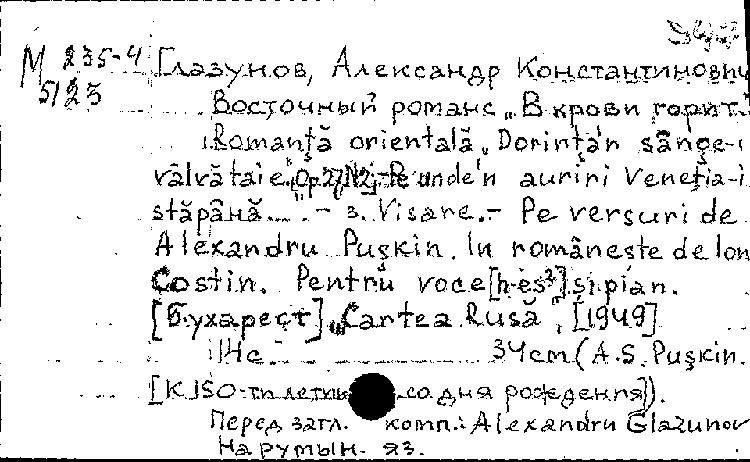 М 235-4
5123
Глазунов, Александр Константинович
Восточный романс „В крови горит..."
Romanţă orientală „Dorinţă'n sânge-i
vâlvătaie" Op.27, N2; Pe unde'n auriri Veneţia-i
stăpână... - 3. Visare.- Pe versuri de
Alexandru Puşkin. In româneşte de Ion
Costin. Pentru voce [h-es²] şi pian.
[Бухарест] „Cartea Rusă", [1949]
11 Нс 34cm (A.S. Puşkin.
[К 150-ти летию со дня рождения]).
Перед загл. комп.: Alexandru Glazunov
На румын. яз.